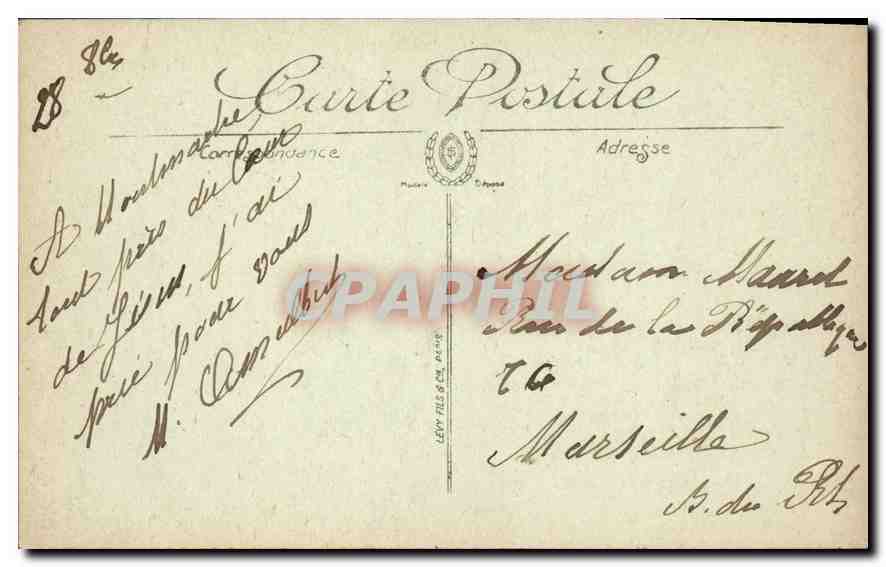 28 8bre
Carte Postale
Correspondance
Adresse
Modèle Déposé
A Montmartre
tout près du Cœur
de Jésus, j'ai
prié pour vous
M.
LEVY FILS & Cie, PARIS
CPAPHIL
Madame Maurel
Rue de la République
76
Marseille
B. du Rh